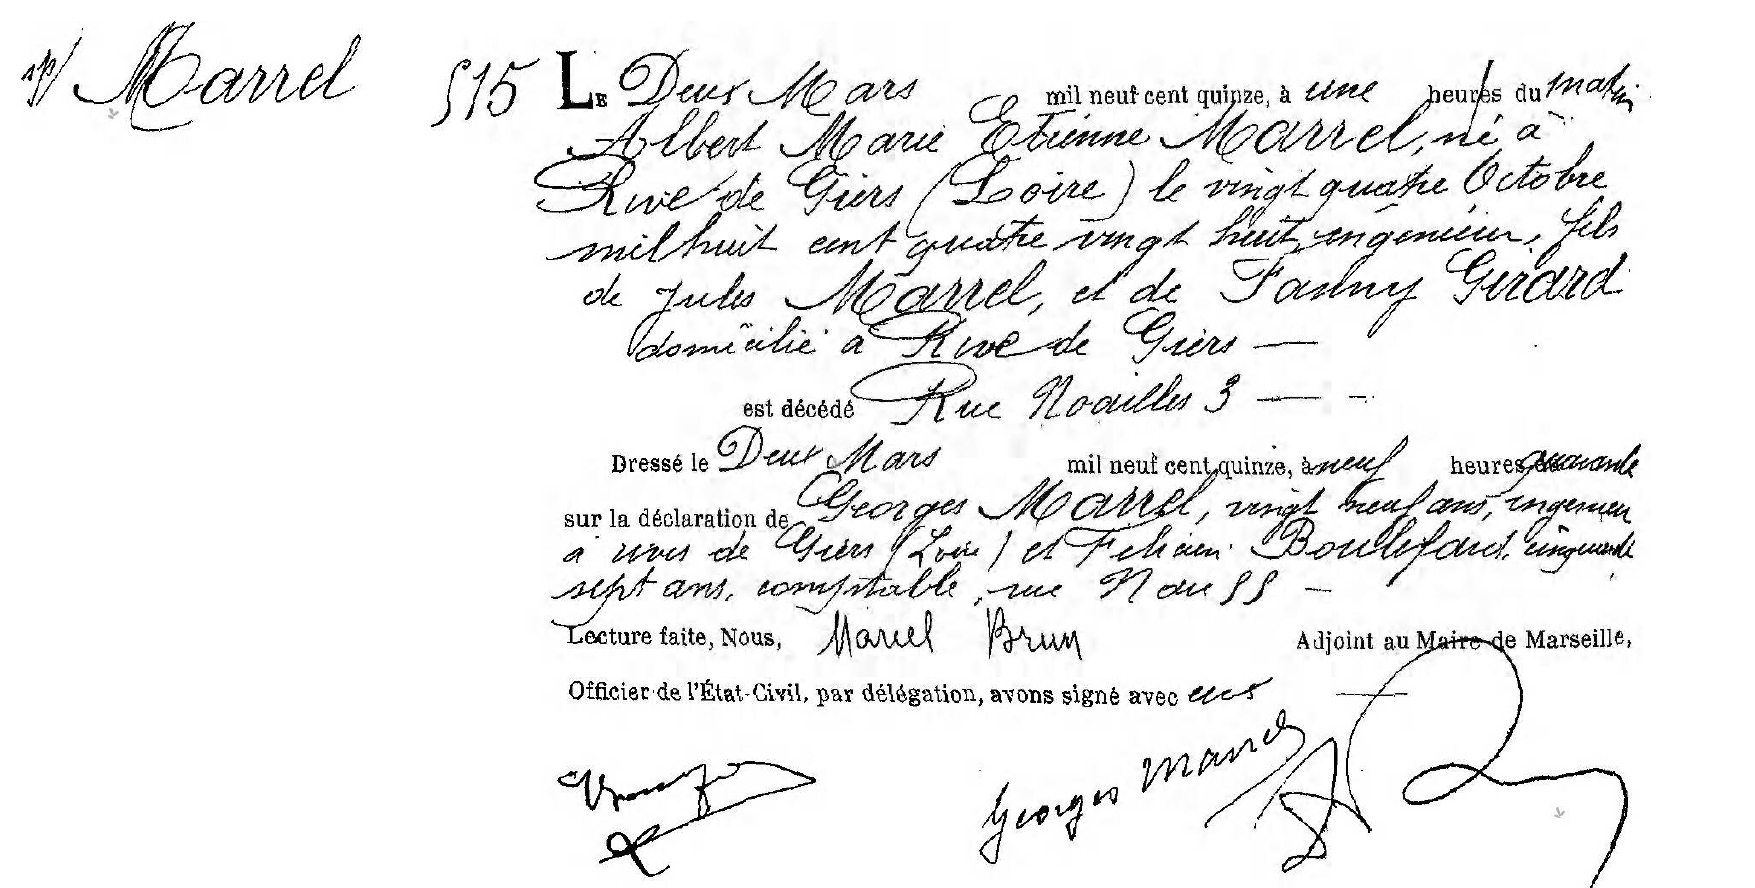 Marrel
515 Le Deux Mars mil neuf cent quinze, à une heures du matin
Albert Marie Etienne Marrel, né à
Rive de Giers (Loire) le vingt quatre Octobre
mil huit cent quatre vingt huit, ingénieur, fils
de Jules Marrel, et de Fanny Girard
domicilié à Rive de Giers —
est décédé Rue Noailles 3 — -
Dressé le Deux Mars mil neuf cent quinze, à neuf heures quarante
sur la déclaration de Georges Marrel, vingt neuf ans, ingenieur
à rives de Giers (Loire) et Felicien cinquante
sept ans, comptable, rue 55 —
Lecture faite, Nous, Marcel Brun Adjoint au Maire de Marseille,
Officier de l'État-Civil, par délégation, avons signé avec eux —
Georges Marrel